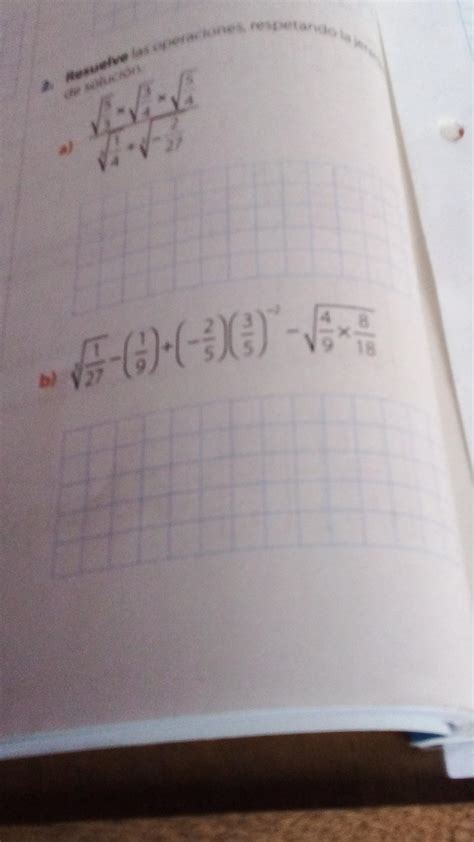 2. Resuelve las operaciones, respetando la
de solución:
a) √(5/3) × √(3/4) × √(5/4) / √(1/4) + ∛(-2/27)
b) ∛(1/27) - (1/9) + (-2/5)(3/5)⁻² - √(4/9 × 8/18)